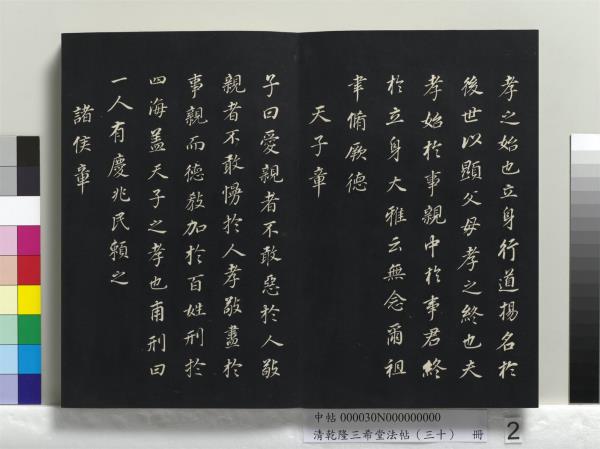 孝之始也立身行道揚名於
後世以顯父母孝之終也夫
孝始於事親中於事君終
於立身大雅云無念爾祖
聿脩厥德
天子章
子曰愛親者不敢惡於人敬
親者不敢慢於人孝敬盡於
事親而德教加於百姓刑於
四海蓋天子之孝也甫刑曰
一人有慶兆民賴之
諸侯章
中帖 000030N000000000
清乾隆三希堂法帖（三十） 冊
2